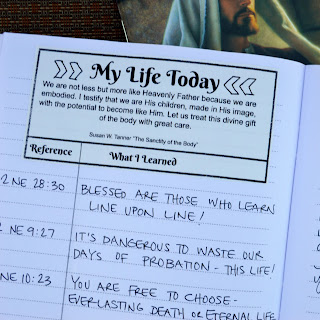 My Life Today
We are not less but more like Heavenly Father because we are
embodied. I testify that we are His children, made in His image,
with the potential to become like Him. Let us treat this divine gift
of the body with great care.
Susan W. Tanner "The Sanctity of the Body"
Reference What I Learned
2 NE 28:30 BLESSED ARE THOSE WHO LEARN
LINE UPON LINE!
2 NE 9:27 IT'S DANGEROUS TO WASTE OUR
DAYS OF PROBATION - THIS LIFE!
NE 10:23 YOU ARE FREE TO CHOOSE -
EVERLASTING DEATH OR ETERNAL LIFE